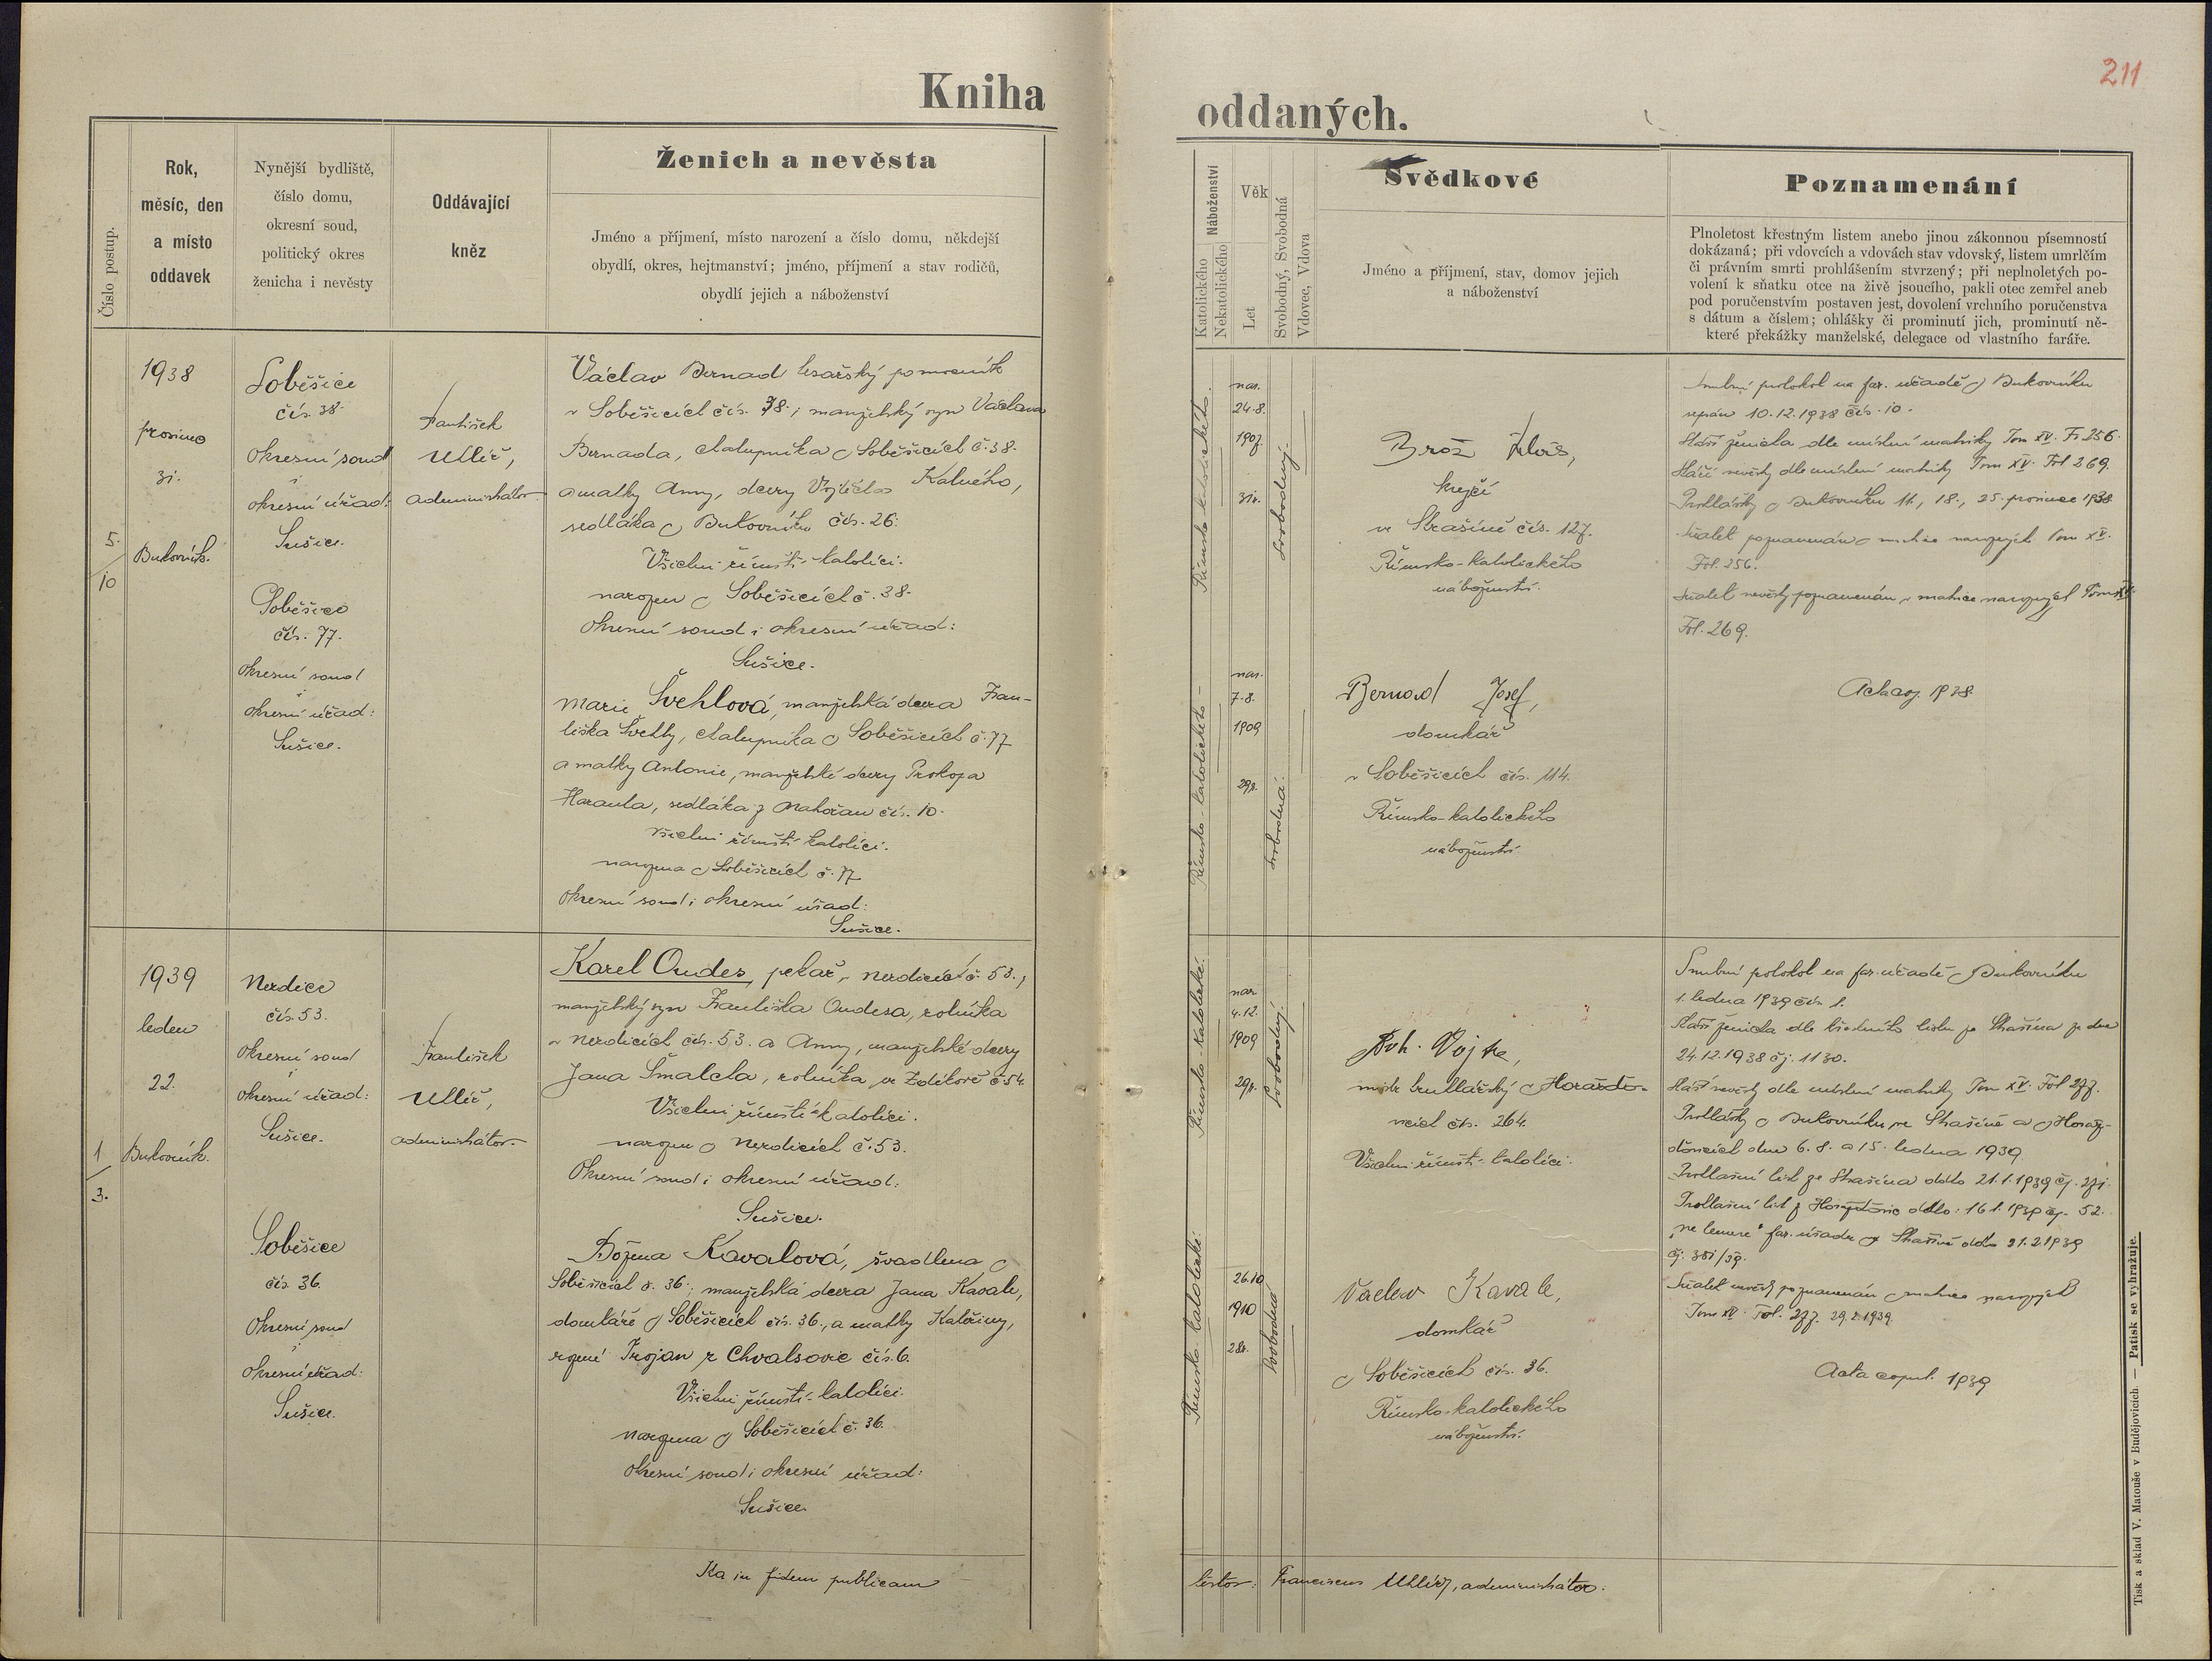 211
Kniha oddaných.
Číslo postup.
Rok,
měsíc, den
a místo
oddavek
Nynější bydliště,
číslo domu,
okresní soud,
politický okres
ženicha i nevěsty
Oddávající
kněz
Ženich a nevěsta
Jméno a příjmení, místo narození a číslo domu, někdejší
obydlí, okres, hejtmanství; jméno, příjmení a stav rodičů,
obydlí jejich a náboženství
Náboženství
Katolického
Nekatolického
Věk
Let
Svobodný, Svobodná
Vdovec, Vdova
Svědkové
Jméno a příjmení, stav, domov jejich
a náboženství
Poznamenání
Plnoletost křestným listem anebo jinou zákonnou písemností
dokázaná; při vdovcích a vdovách stav vdovský, listem umrlčím
či právním smrti prohlášením stvrzený; při neplnoletých po-
volení k sňatku otce na živě jsoucího, pakli otec zemřel aneb
pod poručenstvím postaven jest, dovolení vrchního poručenstva
s dátum a číslem; ohlášky či prominutí jich, prominutí ně-
které překážky manželské, delegace od vlastního faráře.
5.
10
1938
prosinec
31.
Bukovník.
Soběšice
čís. 38.
okresní soud
i
okresní úřad:
Sušice.
Soběšice
čís. 77.
okresní soud
i
okresní úřad:
Sušice.
František
Uhlíř,
administrátor
Václav Bernad, pomocník
v Soběšicích čís. 38.; manželský syn Václava
Bernada, chalupníka v Soběšicích č. 38.
a matky Anny, dcery Vojtěcha Kalného,
sedláka v Bukovníku čís. 26.
Všichni římští-katolíci.
narozen v Soběšicích č. 38.
Okresní soud i okresní úřad:
Sušice.
Marie Švehlová, manželská dcera Fran-
tiška Švehly, chalupníka v Soběšicích č. 77
a matky Antonie, manželské dcery Prokopa
sedláka z čís. 10.
Všichni římští-katolíci.
narozena v Soběšicích č. 77
Okresní soud i okresní úřad:
Sušice.
Římsko-katolického.
nar.
24.8.
1907
31r.
Svobodný.
Brož Alois,
krejčí
ve Strašíně čís. 127.
Římsko-katolického
náboženství.
Římsko-katolického
nar.
7.8.
1909
29r.
svobodná.
Bernad Josef,
domkář
v Soběšicích čís. 114.
Římsko-katolického
náboženství.
Snubní protokol na far. úřadě v Bukovníku
sepsán 10.12.1938 čís. 10.
Stáří ženicha dle místní matriky Tom XV. Fol. 256.
Stáří nevěsty dle místní matriky Tom XV. Fol 269.
Prohlášky v Bukovníku 11., 18., 25. prosince 1938
Sňatek poznamenán v matrice narozených Tom XV.
Fol. 256.
Sňatek nevěsty poznamenán v matrice narozených Tom XV.
Fol. 269.
Acta cop. 1938
1
3.
1939
leden
22.
Bukovník.
Nezdice
čís. 53.
Okresní soud
i
okresní úřad:
Sušice.
Soběšice
čís. 36.
Okresní soud
i
okresní úřad:
Sušice.
František
Uhlíř,
administrátor
Karel Oudes, pekař v Nezdicích č. 53.,
manželský syn Františka Oudesa, rolníka
v Nezdicích čís. 53. a Anny, manželské dcery
Jana Šmalcla, rolníka ve Zdíkově č. 54.
Všichni římští-katolíci.
narozen v Nezdicích č. 53.
Okresní soud i okresní úřad:
Sušice.
Božena Kavalová, švadlena v
Soběšicích č. 36.; manželská dcera Jana Kavale,
domkáře v Soběšicích čís. 36., a matky Kateřiny,
rozené Trojan z Chvalšovic čís. 6.
Všichni římští-katolíci.
narozena v Soběšicích č. 36.
Okresní soud i okresní úřad:
Sušice.
Římsko-katolické.
nar.
4.12.
1909
29r.
Svobodný.
Boh. Vojta,
mistr truhlářský v Horažďo-
vicích čís. 264.
Všichni římští-katolíci.
Římsko-katolické.
26.10
1910
28r.
Svobodná
Václav Kavale,
domkář
v Soběšicích čís. 36.
Římsko-katolického
náboženství.
Snubní protokol na far. úřadě v Bukovníku
1. ledna 1939 čís. 1.
Stáří ženicha dle křestního listu ze Strašína ze dne
24.12.1938 čj. 1130.
Stáří nevěsty dle místní matriky Tom XV. Fol 277.
Prohlášky v Bukovníku, ve Strašíně a v Horaž-
ďovicích dne 6. 8. a 15. ledna 1939.
Prohlašní list ze Strašína ddto 21.1.1939 čj. 271.
Prohlašní list z Horažďovic ddto: 16.1.1939 čj. 52.
"ne temere" far. úřadu ve Strašíně ddto 21.2.1939
čj. 351/39.
Sňatek nevěsty poznamenán v matrice narozených
Tom XV. Fol. 277. 29.1.1939.
Acta copul. 1939
Ita in fidem publicam
testor: Franciscus Uhlíř, administrátor.
Tisk a sklad V. Matouše v Budějovicích. — Patisk se vyhražuje.